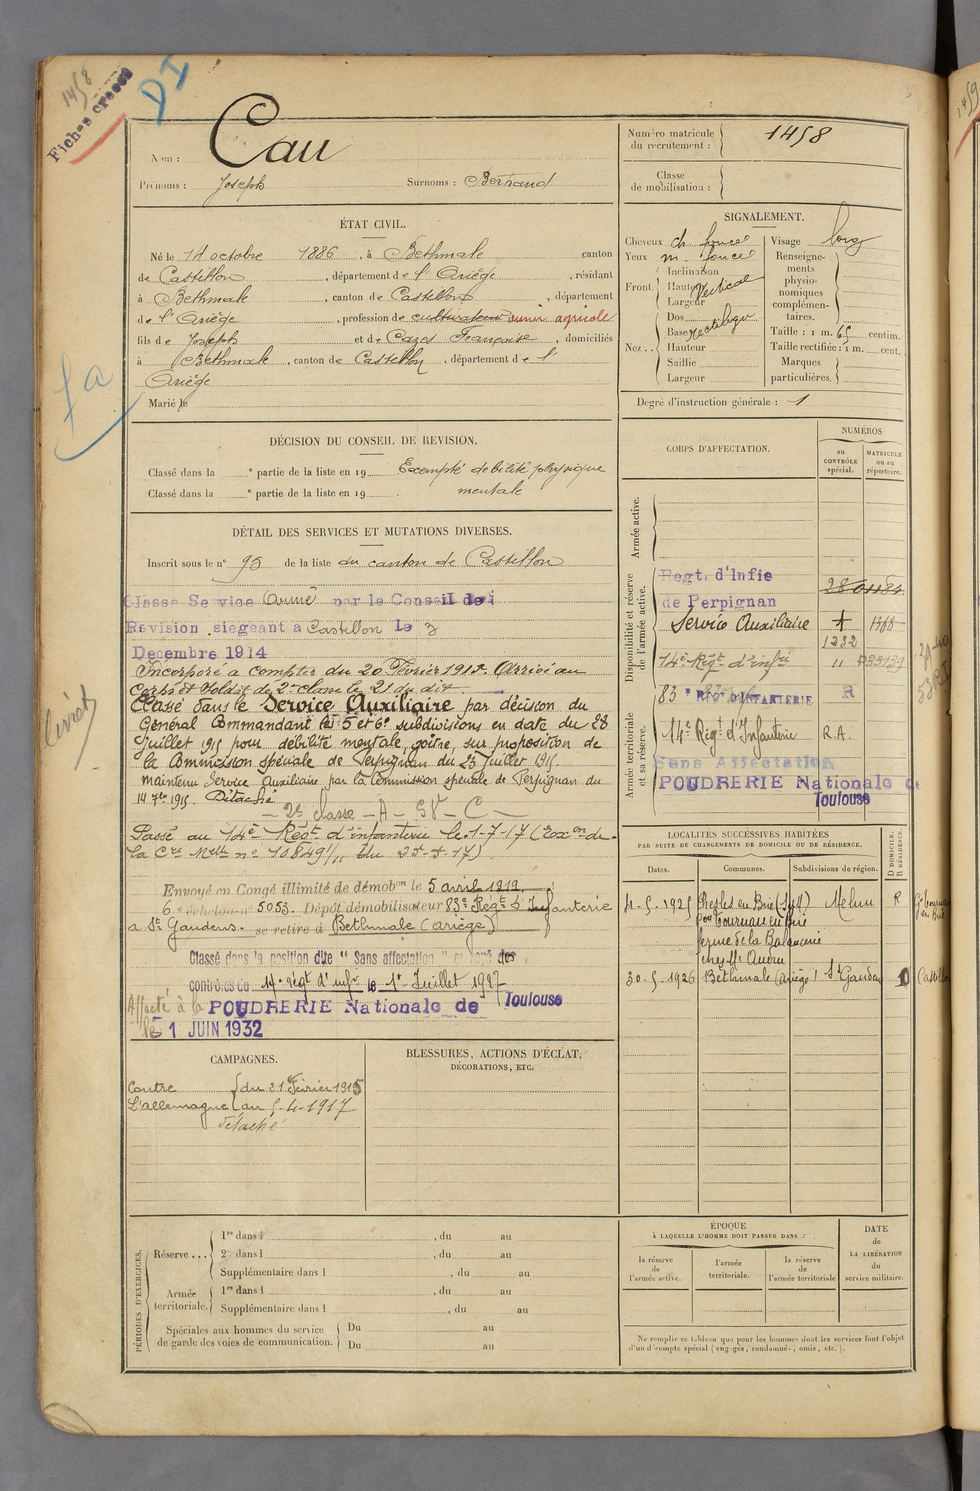 1458
Fiches creees
DI
Nom : Cau
Prénoms : Joseph Surnoms : Bertrand
ÉTAT CIVIL.
Né le 14 octobre 1886 , à Bethmale canton
de Castillon , département de l'Ariège , résidant
à Bethmale , canton de Castillon , département
de l'Ariège , profession de cultivateur ouvrier agricole
fils de Joseph et de Cazes Françoise , domiciliés
à Bethmale , canton de Castillon , département de l'
Ariège
Marié le
DÉCISION DU CONSEIL DE REVISION.
Classé dans la e partie de la liste en 19 Exempté debilité physique
Classé dans la e partie de la liste en 19 . mentale
DÉTAIL DES SERVICES ET MUTATIONS DIVERSES.
Inscrit sous le n° 95 de la liste du canton de Castillon
Classe Service Armé par le Conseil de
Revision siegeant a Castillon Le 3
Decembre 1914
Incorporé à compter du 20 Février 1915. Arrivé au
corps et soldat de 2e classe le 21 du dit
Classé dans le Service Auxiliaire par décision du
Général Commandant les 5e et 6e subdivisions en date du 28
Juillet 1915 pour débilité mentale, goître, sur proposition de
la Commission spéciale de Perpignan du 23 Juillet 1915.
maintenu Service Auxiliaire par la Commission spéciale de Perpignan du
14 7bre 1915. Détaché
- 2e classe - A - SV - C -
Passé au 14e Régt d'infanterie le 1-7-17 (
la Cre Melle n° 10849 1/11 du
Envoyé en Congé illimité de démobon le 5 avril 1919.
6 e échelon n° 5053. Dépôt démobilisateur 83e Régt d'Infanterie
a St Gaudens. se retire à Bethmale (ariège)
Classé dans la position dite " Sans affectation " et rayé des
controles du 14e régt d'infie le 1er Juillet 1927
Affecté à la POUDRERIE Nationale de Toulouse
le 1 JUIN 1932
CAMPAGNES.
Contre { du 21 Février 1915
L'allemagne { au 5-4-1917
Détaché
BLESSURES, ACTIONS D'ÉCLAT,
DÉCORATIONS, ETC.
PÉRIODES D'EXERCICES.
Réserve ...
1re dans l , du au
2e dans l , du au
Supplémentaire dans l , du au
Armée territoriale.
1re dans l , du au
Supplémentaire dans l , du au
Spéciales aux hommes du service
de garde des voies de communication.
Du au
Du au
Numéro matricule
du recrutement : 1458
Classe
de mobilisation :
SIGNALEMENT.
Cheveux ch. foncé
Yeux m. foncé
Front.
Inclinaison
Hauteur Vertical
Largeur
Nez ..
Dos
Base rectiligne
Hauteur
Saillie
Largeur
Visage long
Renseigne-
ments
physio-
nomiques
complémen-
taires.
Taille : 1 m. 65 centim.
Taille rectifiée : 1 m. cent.
Marques
particulières.
Degré d'instruction générale : 1
CORPS D'AFFECTATION.
NUMÉROS
au
CONTRÔLE
spécial.
MATRICULE
ou au
répertoire.
Armée active.
Disponibilité et réserve
de l'armée active.
Regt. d'Infie
de Perpignan
Service Auxiliaire
1232
14e Régt d'infie "
83e REGt D'INFANTERIE R
Armée territoriale
et sa réserve.
14e Régt d'Infanterie R.A.
Sans Affectation
POUDRERIE Nationale de
Toulouse
LOCALITÉS SUCCESSIVES HABITÉES
PAR SUITE DE CHANGEMENTS DE DOMICILE OU DE RÉSIDENCE.
D DOMICILE.
R RÉSIDENCE.
Dates. Communes. Subdivisions de région.
4-5-1925 Presles en Brie (S&M) Melun R
par Tournan en Brie
ferme de la
chez Mr
30-5-1926 Bethmale (Ariège) St Gaudens D
ÉPOQUE
À LAQUELLE L'HOMME DOIT PASSER DANS :
la réserve
de
l'armée active.
l'armée
territoriale.
la réserve
de
l'armée territoriale
DATE
de
LA LIBÉRATION
du
service militaire.
Ne remplir ce tableau que pour les hommes dont les services font l'objet
d'un décompte spécial (engagés, condamnés, omis, etc.).